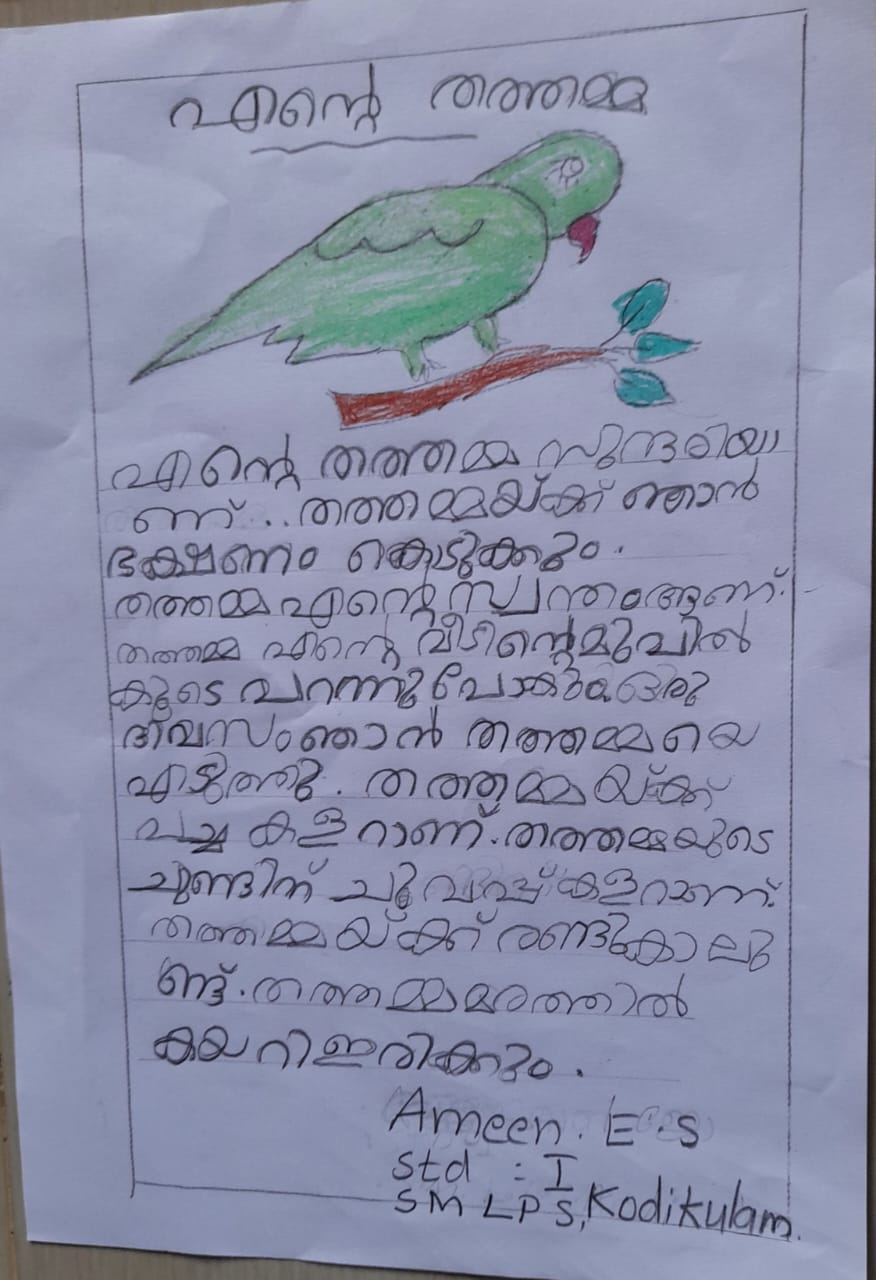 എന്റെ തത്തമ്മ
എന്റെ തത്തമ്മ സുന്ദരിയാ
ണ്. തത്തമ്മയ്ക്ക് ഞാൻ
ഭക്ഷണം കൊടുക്കും.
തത്തമ്മ എന്റെ സ്വന്തം ആണ്.
തത്തമ്മ എന്റെ വീടിന്റെ മുമ്പിൽ
കൂടെ പറന്നു പോകും. ഒരു
ദിവസം ഞാൻ തത്തമ്മയെ
എടുത്തു. തത്തമ്മയ്ക്ക്
പച്ച കളറാണ്. തത്തമ്മയുടെ
ചുണ്ടിന് ചുവപ്പ് കളറാണ്.
തത്തമ്മയ്ക്ക് രണ്ടുകാലു
ണ്ട്. തത്തമ്മ മരത്തിൽ
കയറി ഇരിക്കും.
Ameen. E.S
Std : I
SM LPS, Kodikulam.